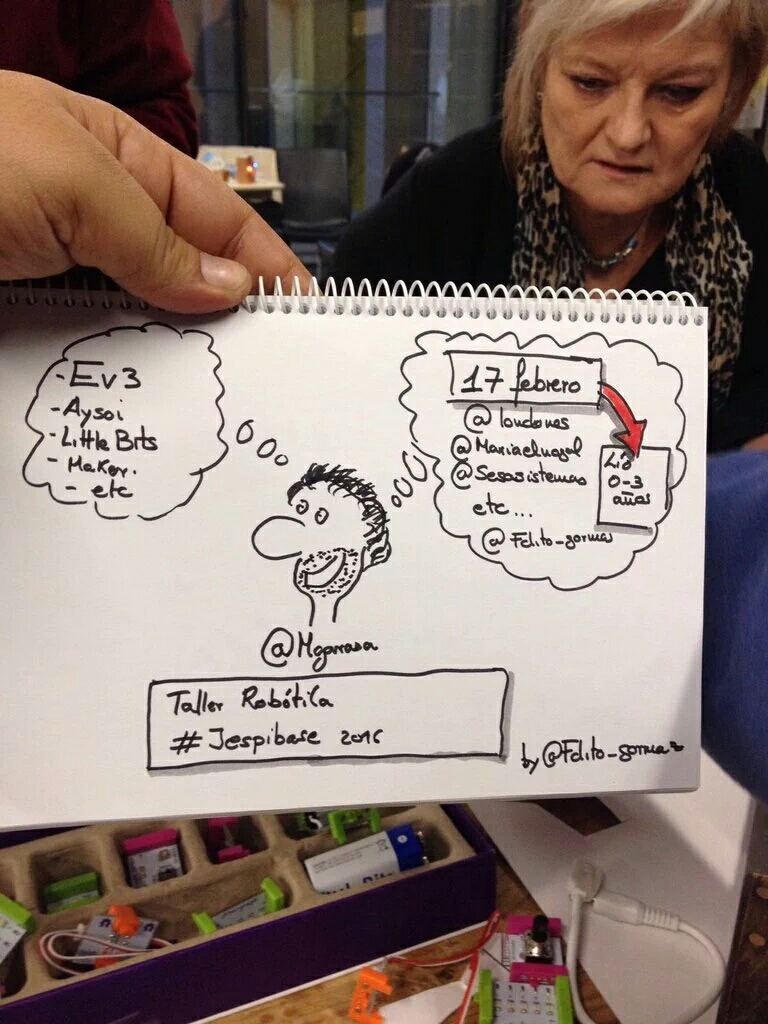 - Ev3
- Aysoi
- LittleBits
- Maker.
- etc
17 febrero
@lourdones
@Mariaelnogal
@Sesosistemas
etc...
@Fclito_gormaz
Lio
0-3
años
@Mgarrasa
Taller Robótila
# Jespibase 2016
by @Fclito_gormaz